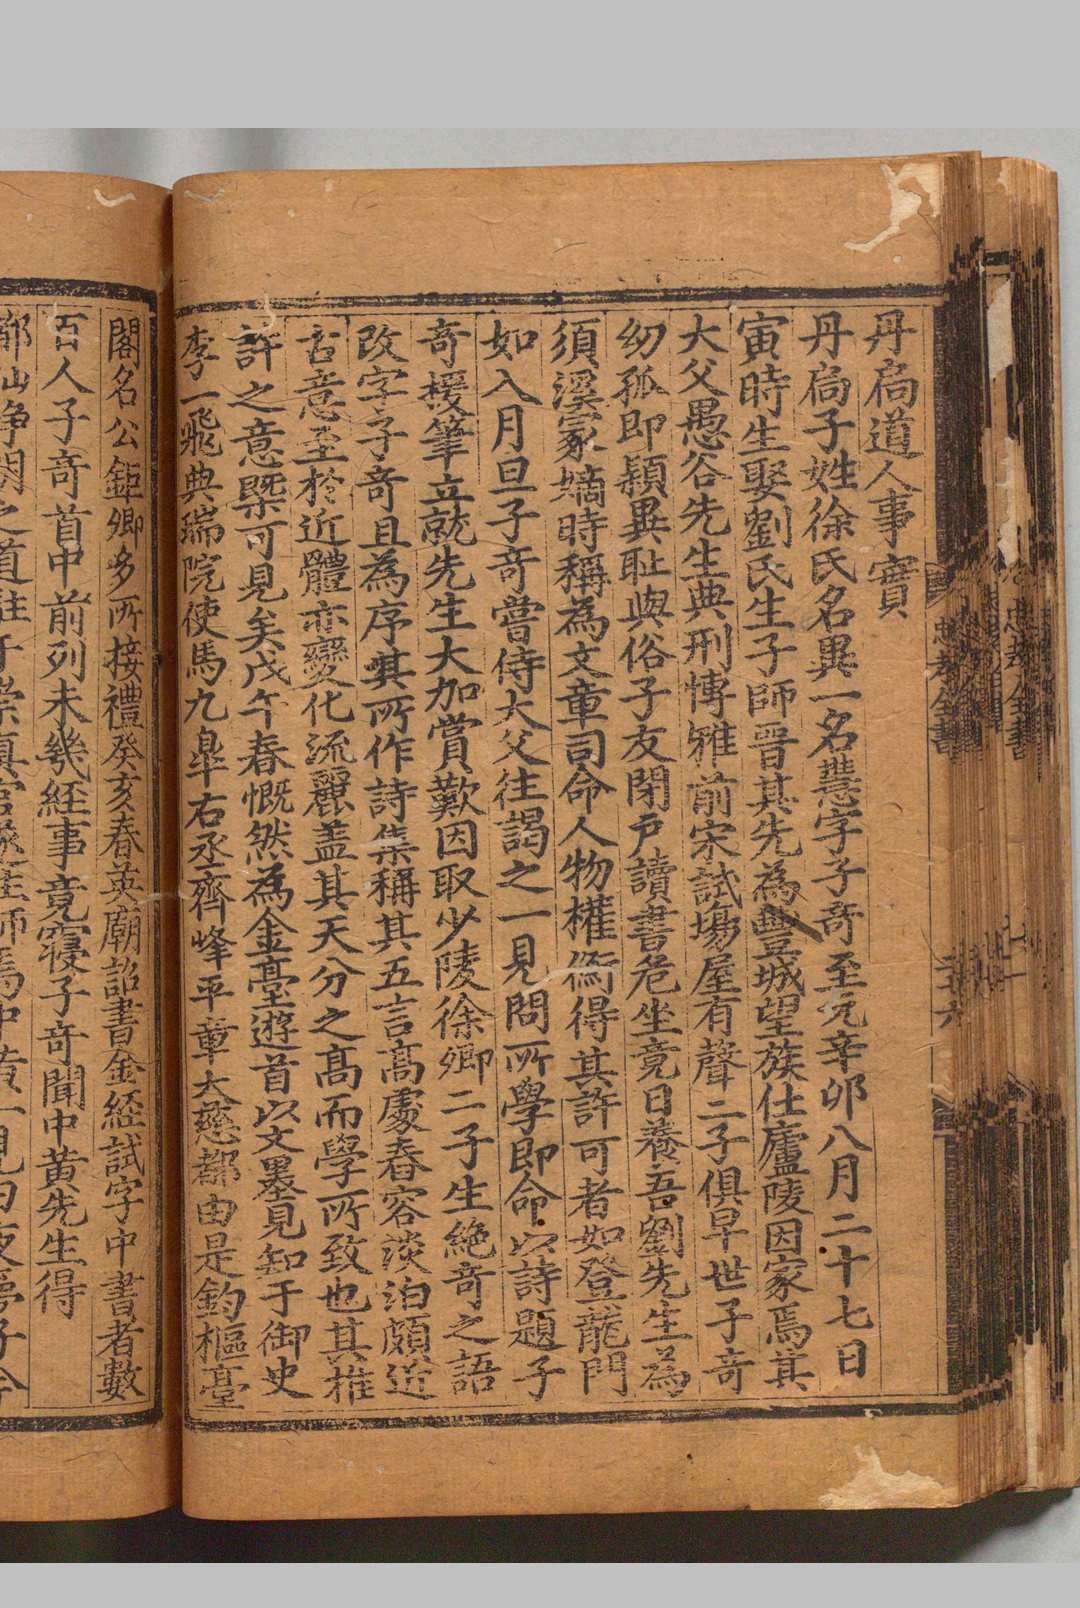 丹扃道人事實
丹扃子姓徐氏名異一名慧字子奇至元辛卯八月二十七日
寅時生娶劉氏生子師晋其先為豐城望族仕廬陵因家焉其
大父愚谷先生典刑慱雅前宋試塲屋有聲二子俱早世子奇
幼孤即頴異耻與俗子友閉戸讀書危坐竟日養吾劉先生為
須溪冢嫡時稱為文章司命人物權衡得其許可者如登龍門
如入月旦子奇嘗侍大父往謁之一見問所學即命以詩題子
奇援筆立就先生大加賞歎因取少陵徐卿二子生絶奇之語
改字子奇且為序其所作詩集稱其五言髙處舂容淡泊頗近
古意至於近體亦變化流麗盖其天分之髙而學所致也其推
許之意槩可見矣戊午春慨然為金臺遊首以文墨見知于御史
李一飛典瑞院使馬九臯右丞齊峰平章大慈都由是鈞樞臺
閣名公鉅卿多所接禮癸亥春英廟詔書金經試字中書者數
百人子奇首中前列未幾經事竟寢子奇聞中黄先生得
忠孝全書